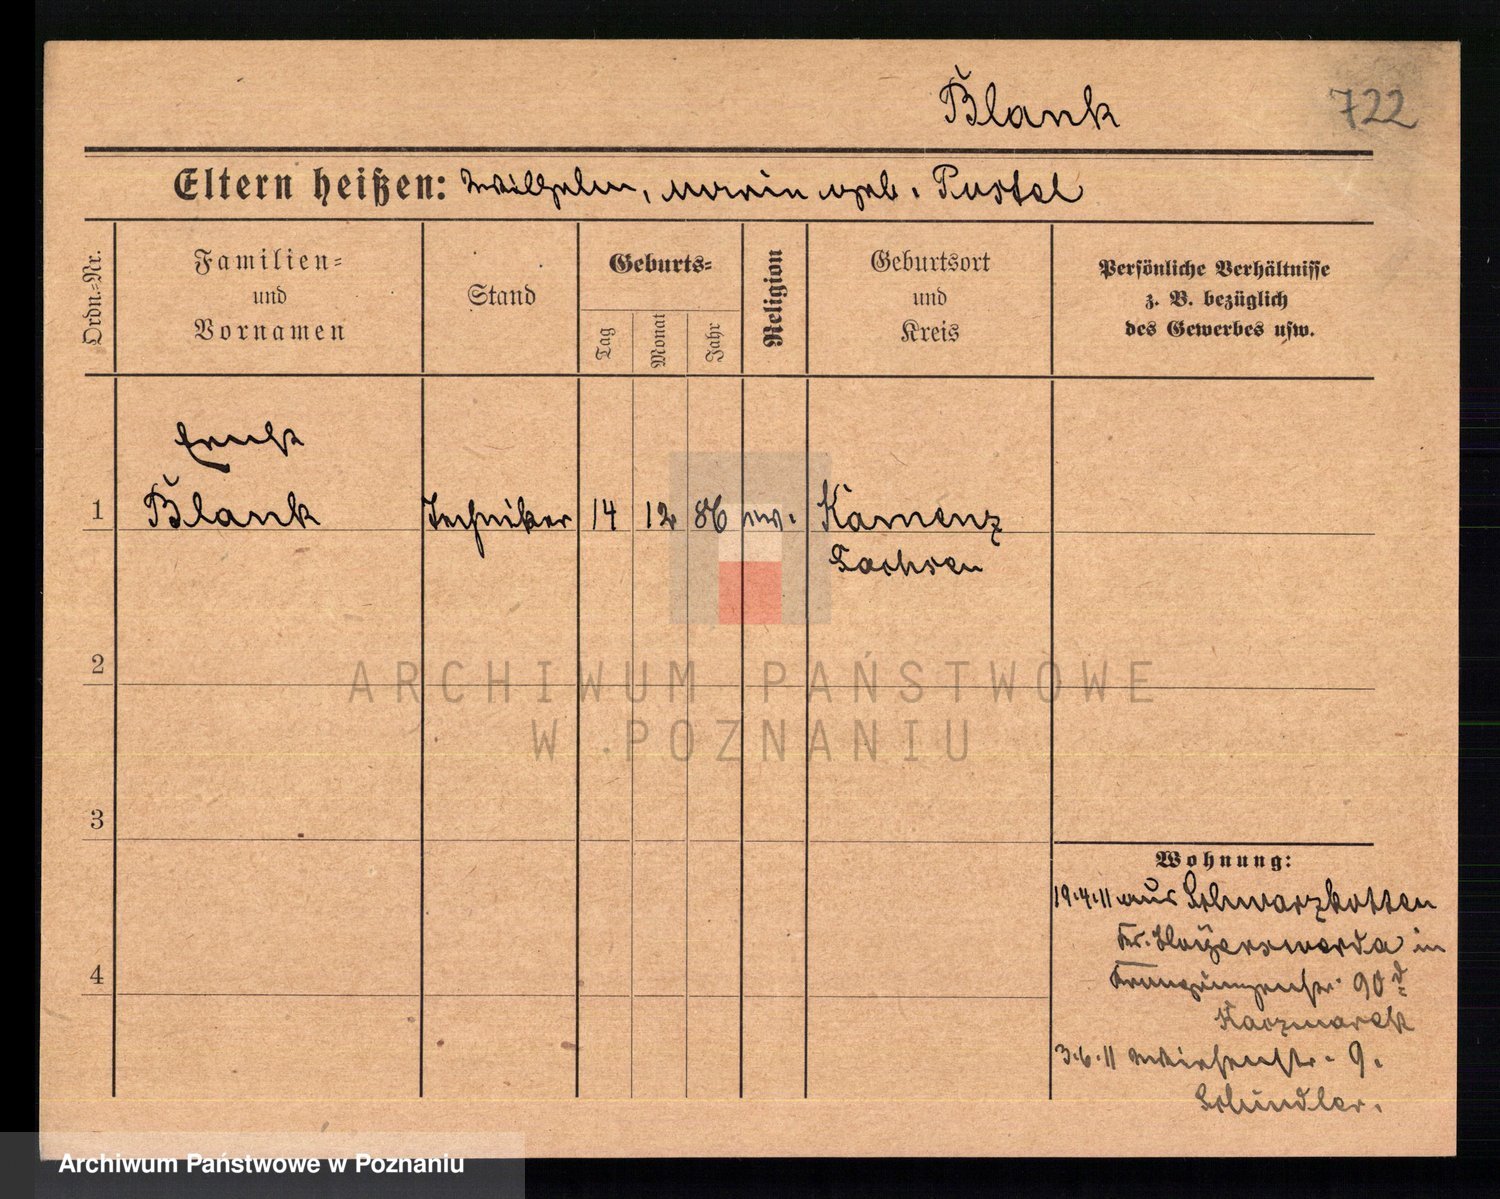 Blank
722
Eltern heißen: Wilhelm, Marie geb. Pustal
Ordn.-Nr.
Familien-
und
Vornamen
Stand
Geburts-
Tag
Monat
Jahr
Religion
Geburtsort
und
Kreis
Persönliche Verhältnisse
z. B. bezüglich
des Gewerbes usw.
Ernst
1 Blank Techniker 14 12 86 ev. Kamenz
Sachsen
2
3
4
Wohnung:
19.4.11 aus Schwarzkotten
Kr. Hoyerswerda in
90 d
Kaczmarek
3.6.11 9.
Schindler.
ARCHIWUM PAŃSTWOWE
W POZNANIU
Archiwum Państwowe w Poznaniu